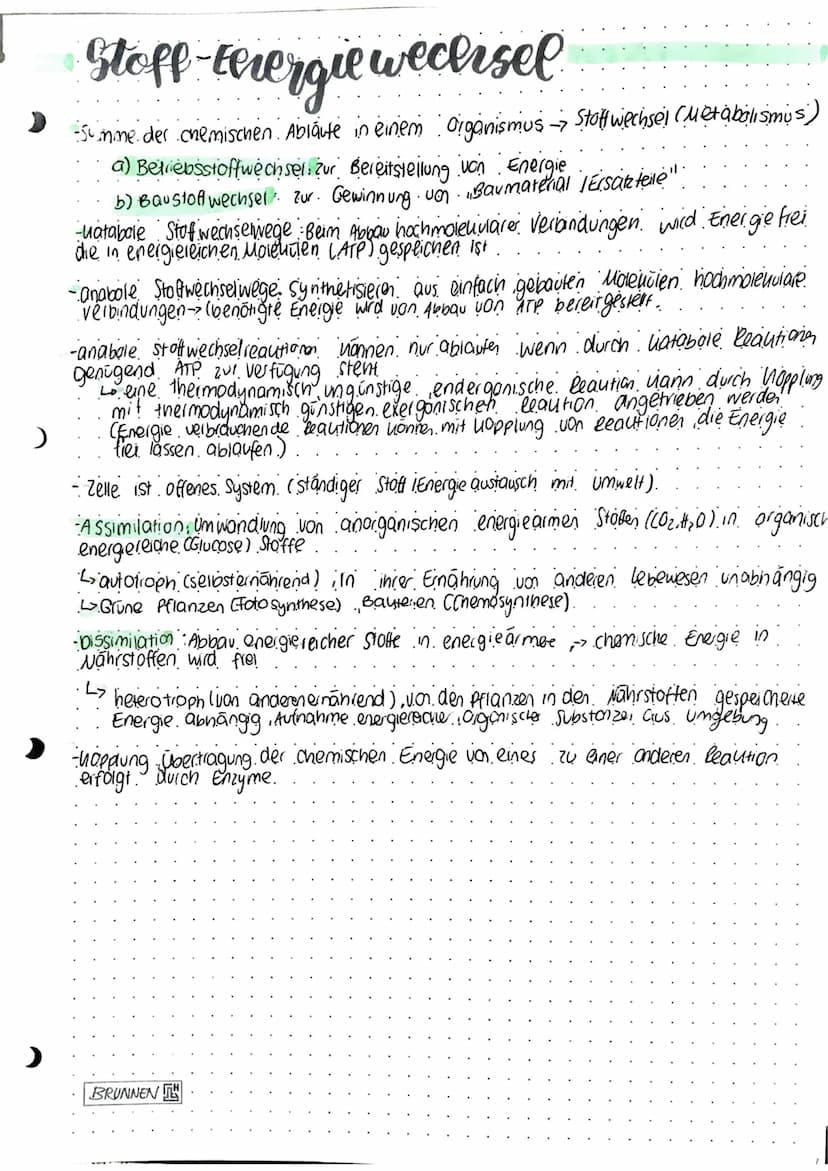 Stoff-Energiewechsel
-Summe der chemischen Abläufe in einem Organismus → Stoffwechsel (Metabolismus)
a) Betriebsstoffwechsel: zur Bereitstellung von Energie
b) Baustoffwechsel: zur Gewinnung von „Baumaterial / Ersatzteile"
-Katabole Stoffwechselwege: Beim Abbau hochmolekularer Verbindungen wird Energie frei
die in energiereichen Molekülen (ATP) gespeichert ist
-anabole Stoffwechselwege: Synthetisieren aus einfach gebauten Molekülen hochmolekulare
Verbindungen → (benötigte Energie wird von Abbau von ATP bereitgestellt.
-anabole Stoffwechselreaktionen können nur ablaufen wenn durch katabole Reaktionen
genügend ATP zur Verfügung steht
↳ eine thermodynamisch ungünstige, endergonische Reaktion kann durch Kopplung
mit thermodynamisch günstigen exergonischen Reaktion angetrieben werden
(Energie verbrauchende Reaktionen können mit Kopplung von Reaktionen, die Energie
frei lassen ablaufen.)
- Zelle ist offenes System (ständiger Stoff / Energie austausch mit Umwelt).
-Assimilation: Umwandlung von anorganischen energiearmen Stoffen (CO2, H2O) in organisch
energiereiche (Glucose) Stoffe
↳ autotroph (selbsternährend), In ihrer Ernährung von anderen Lebewesen unabhängig
↳ Grüne Pflanzen (Fotosynthese), Bakterien (Chemosynthese)
-Dissimilation: Abbau energiereicher Stoffe in energieärmere, → chemische Energie in
Nährstoffen wird frei
↳ heterotroph (von anderen ernährend), von den Pflanzen in den Nährstoffen gespeicherte
Energie abhängig, Aufnahme energiereicher, Organischer Substanzen aus Umgebung
-Kopplung: Übertragung der chemischen Energie von eines zu einer anderen Reaktion
erfolgt durch Enzyme.
BRUNNEN